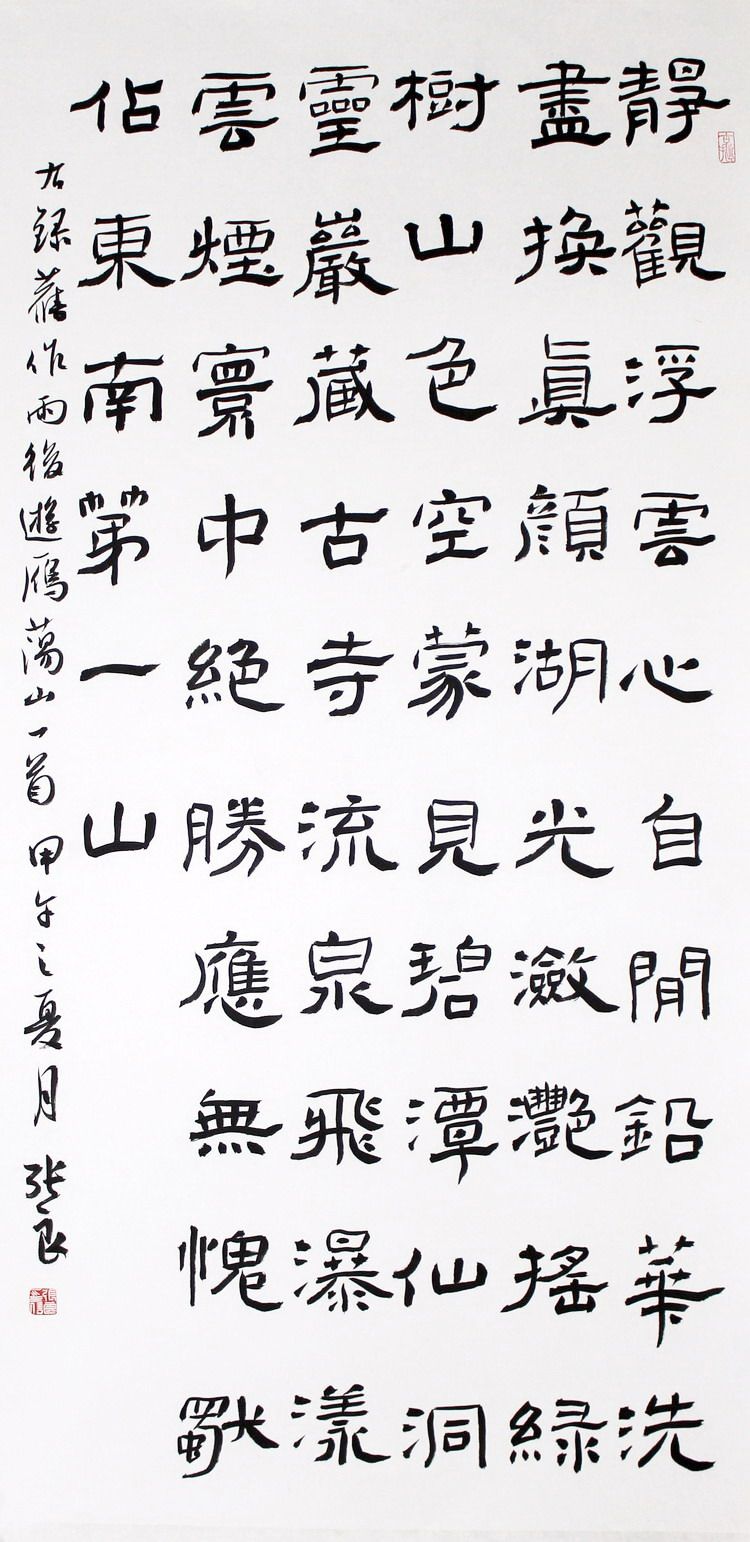 靜觀浮雲心自閒鉛華洗
盡換眞顏湖光瀲灩搖綠
樹山色空蒙見碧潭仙洞
靈巖藏古寺流泉飛瀑漾
雲煙寰中絕勝應無愧獨
佔東南第一山
右錄舊作雨後遊雁蕩山一首甲午之夏月張良